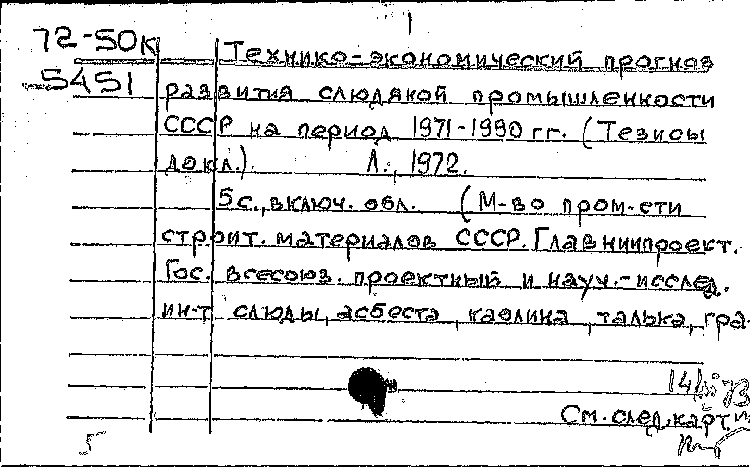 1
72-50к Технико-экономический прогноз
5451 развития слюдяной промышленности
СССР на период 1971-1990 гг. (Тезисы
докл.). Л., 1972.
5с., включ. обл. (М-во пром-сти
строит. материалов СССР. Главниипроект.
Гос. всесоюз. проектный и науч.-исслед.
ин-т слюды, асбеста, каолина, талька, гра-
73
См. след. карт.
5